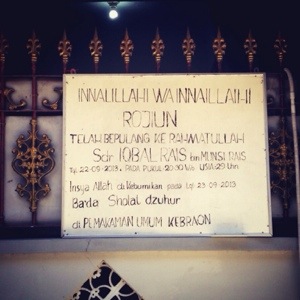 INNALILLAHI WAINNAILLAIHI
ROJIUN
TELAH BEPULANG KE RAHMATULLAH
Sdr IQBAL RAIS bin MUNSIR RAIS
Tgl. 22-09-2013. PADA PUKUL 20:30 Wib USIA: 29 Thn.
Insya Allah di Kebumikan pada tgl 23-09-2013
Ba'da Sholat dzuhur
di PEMAKAMAN UMUM KEBRAON